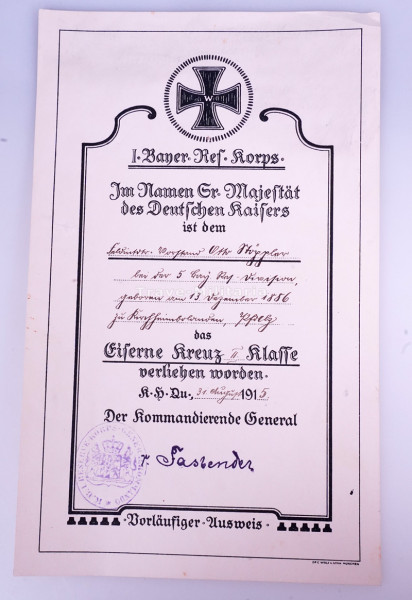 W
I. Bayer. Res. Korps.
Im Namen Sr. Majestät
des Deutschen Kaisers
ist dem
Vorstand Otto Stöppler
bei der 5 bay Res Division,
geboren am 13 Dezember 1886
zu Kirchheimbolanden, Pfalz
das
Eiserne Kreuz II Klasse
verliehen worden.
K. H. Qu., 31 August 1915
Der Kommandierende General
v. Fasbender
·Vorläufiger·Ausweis·